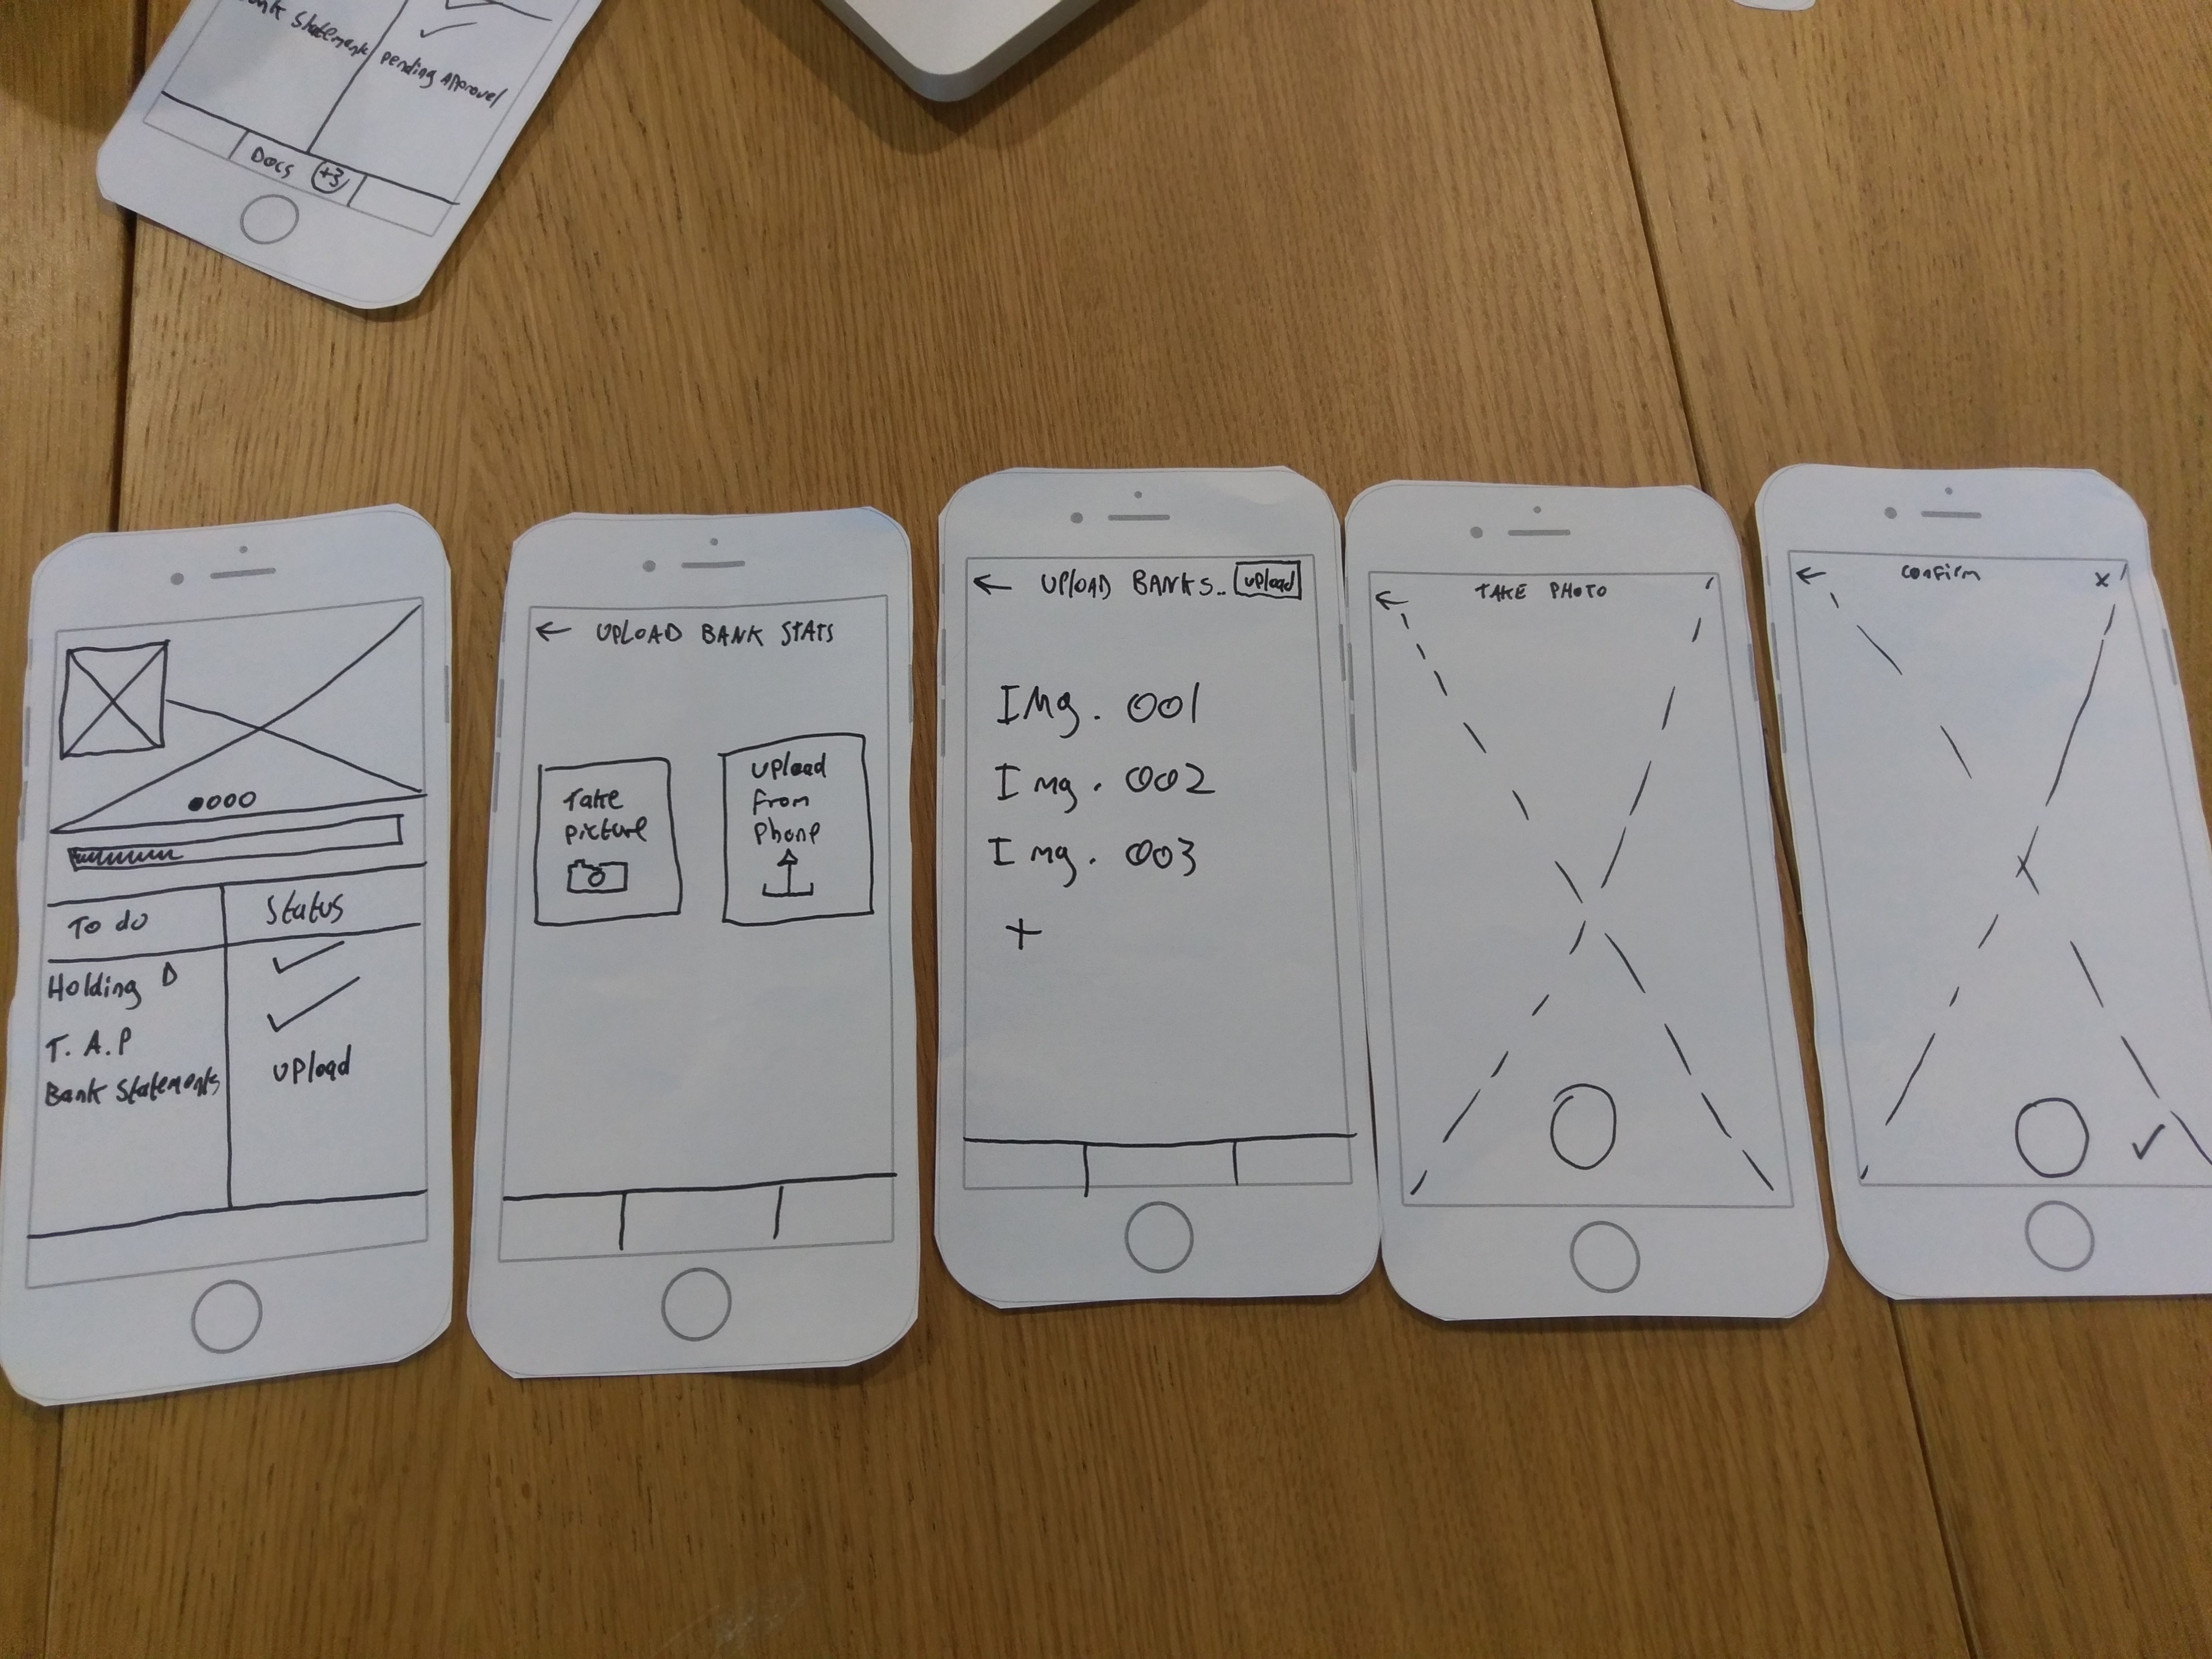 Bank Statement
pending Approvel
Docs +3
To do
Status
Holding D
T. A. P
Bank Statements
upload
UPLOAD BANK STATS
Take
picture
upload
from
phone
UPLOAD BANKS..
upload
IMg. 001
Img. 002
Img. 003
+
TAKE PHOTO
confirm
x